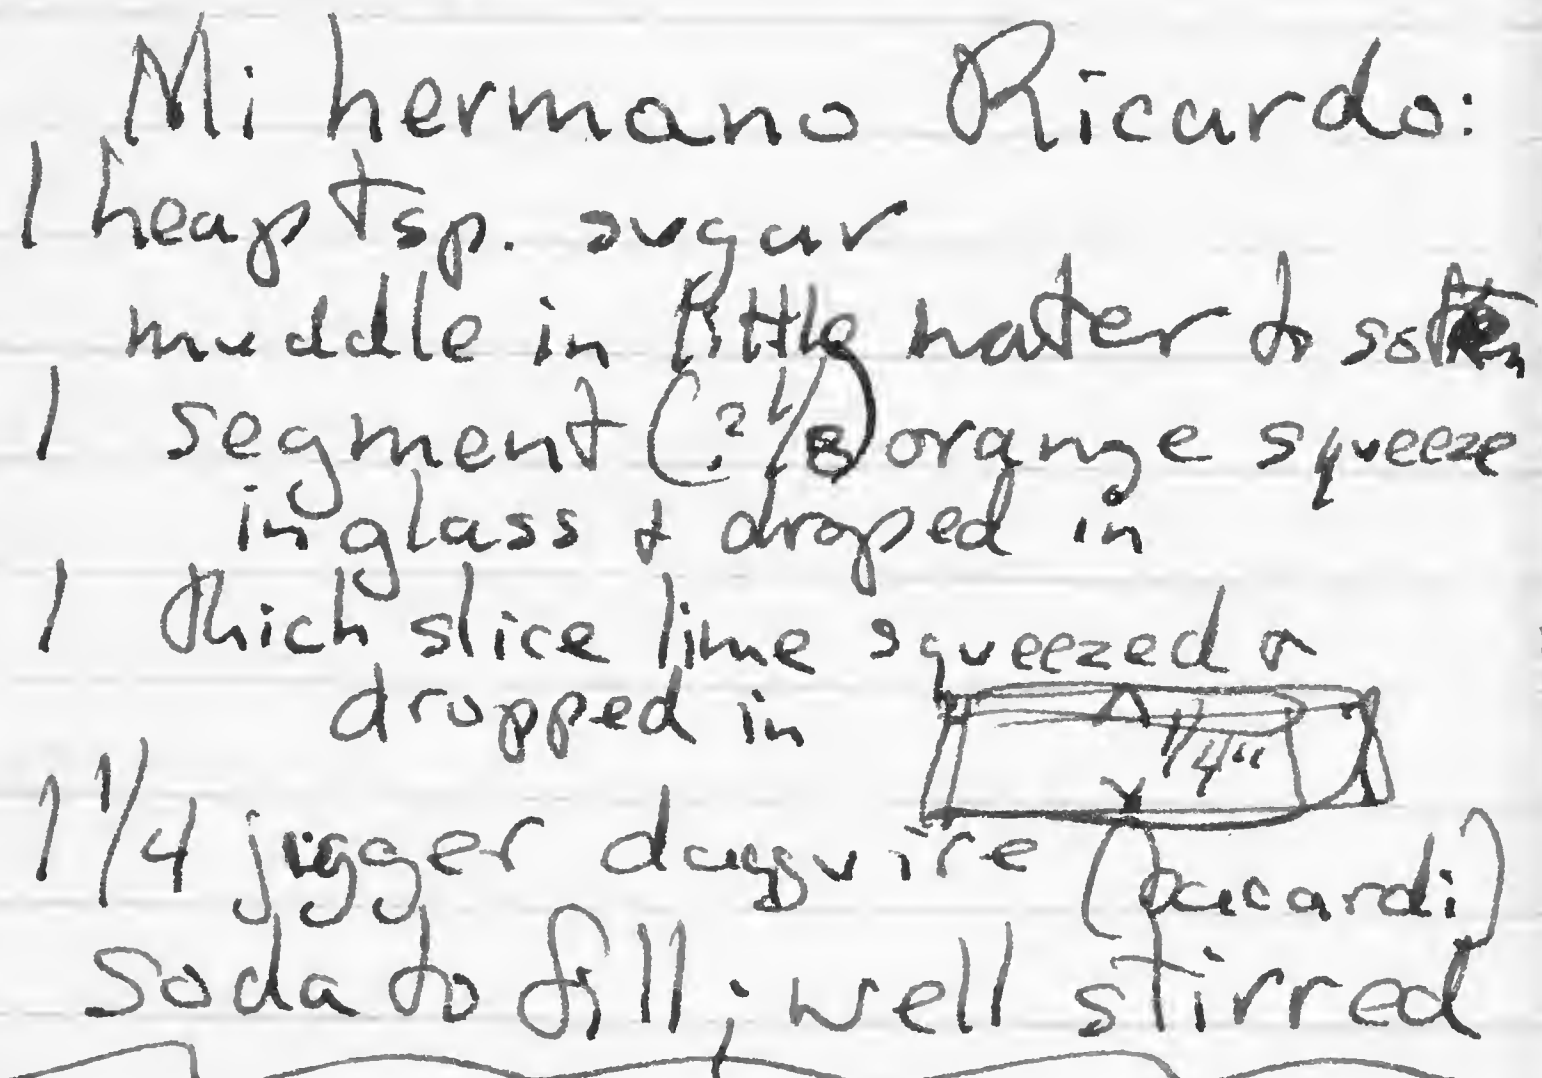 Mi hermano Ricardo:
1 heap tsp. sugar
muddle in little water to soften
1 segment (? 1/8) orange squeeze
in glass & droped in
1 thick slice lime squeezed &
dropped in
1/4"
1 1/4 jigger (Bacardi)
Soda to fill; well stirred